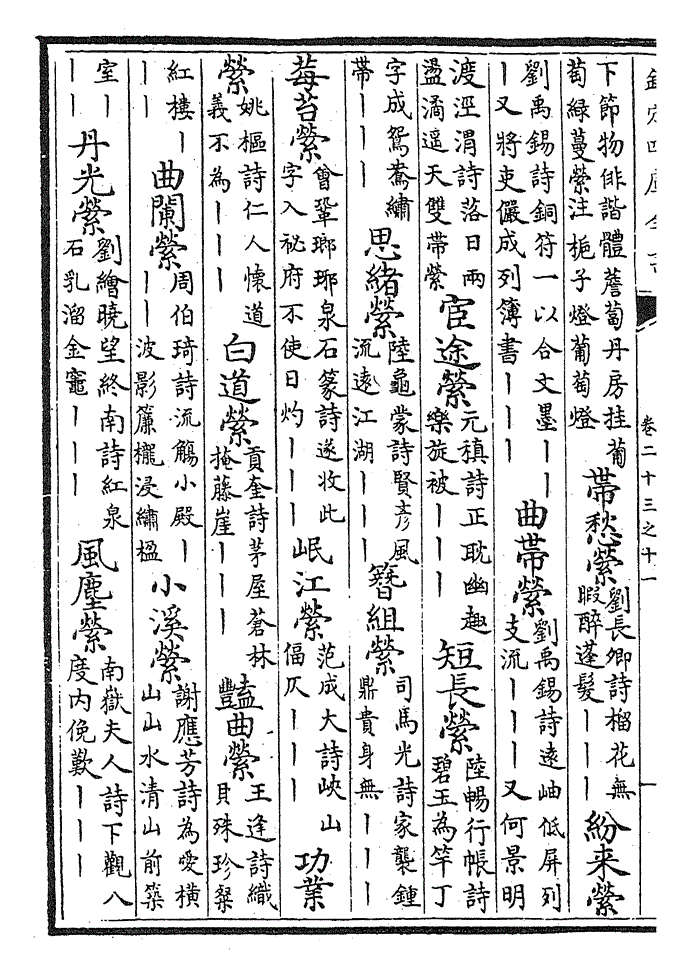 欽定四庫全書
卷二十三之十一
下節物俳諧體薝蔔丹房挂葡
萄綠蔓縈注梔子燈葡萄燈
帶愁縈
劉長卿詩榴花無
暇醉蓬髮丨丨丨
紛来縈
劉禹錫詩銅符一以合文墨丨丨
丨又將吏儼成列簿書丨丨丨
曲帶縈
劉禹錫詩遠岫低屏列
支流丨丨丨又何景明
渡涇渭詩落日兩
盪潏遥天雙帶縈
宦途縈
元稹詩正耽幽趣
樂旋被丨丨丨
短長縈
陸暢行帳詩
碧玉為竿丁
字成鴛鴦繡
帶丨丨丨
思緒縈
陸龜蒙詩賢彥風
流遠江湖丨丨丨
簪組縈
司馬光詩家襲鍾
鼎貴身無丨丨丨
莓苔縈
曾鞏瑯琊泉石篆詩遂收此
字入祕府不使日灼丨丨丨
岷江縈
范成大詩峽山
偪仄丨丨丨
功業
縈
姚樞詩仁人懷道
義不為丨丨丨
白道縈
貢奎詩茅屋蒼林
掩藤崖丨丨丨
豔曲縈
王逢詩織
貝殊珍粲
紅樓丨
丨丨
曲闌縈
周伯琦詩流觴小殿丨
丨丨波影簾櫳浸繡楹
小溪縈
謝應芳詩為愛橫
山山水清山前築
室丨
丨丨
丹光縈
劉繪曉望終南詩紅泉
石乳溜金竈丨丨丨
風塵縈
南嶽夫人詩下觀八
度内俛歎丨丨丨